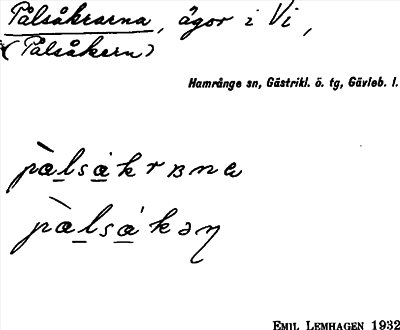 Pålsåkrarna, ägor i Vi,
(Pålsåkern)
Hamrånge sn, Gästrikl. ö. tg, Gävleb. l.
pàlsákrʙna
pàlsákəη
EMIL LEMHAGEN 1932